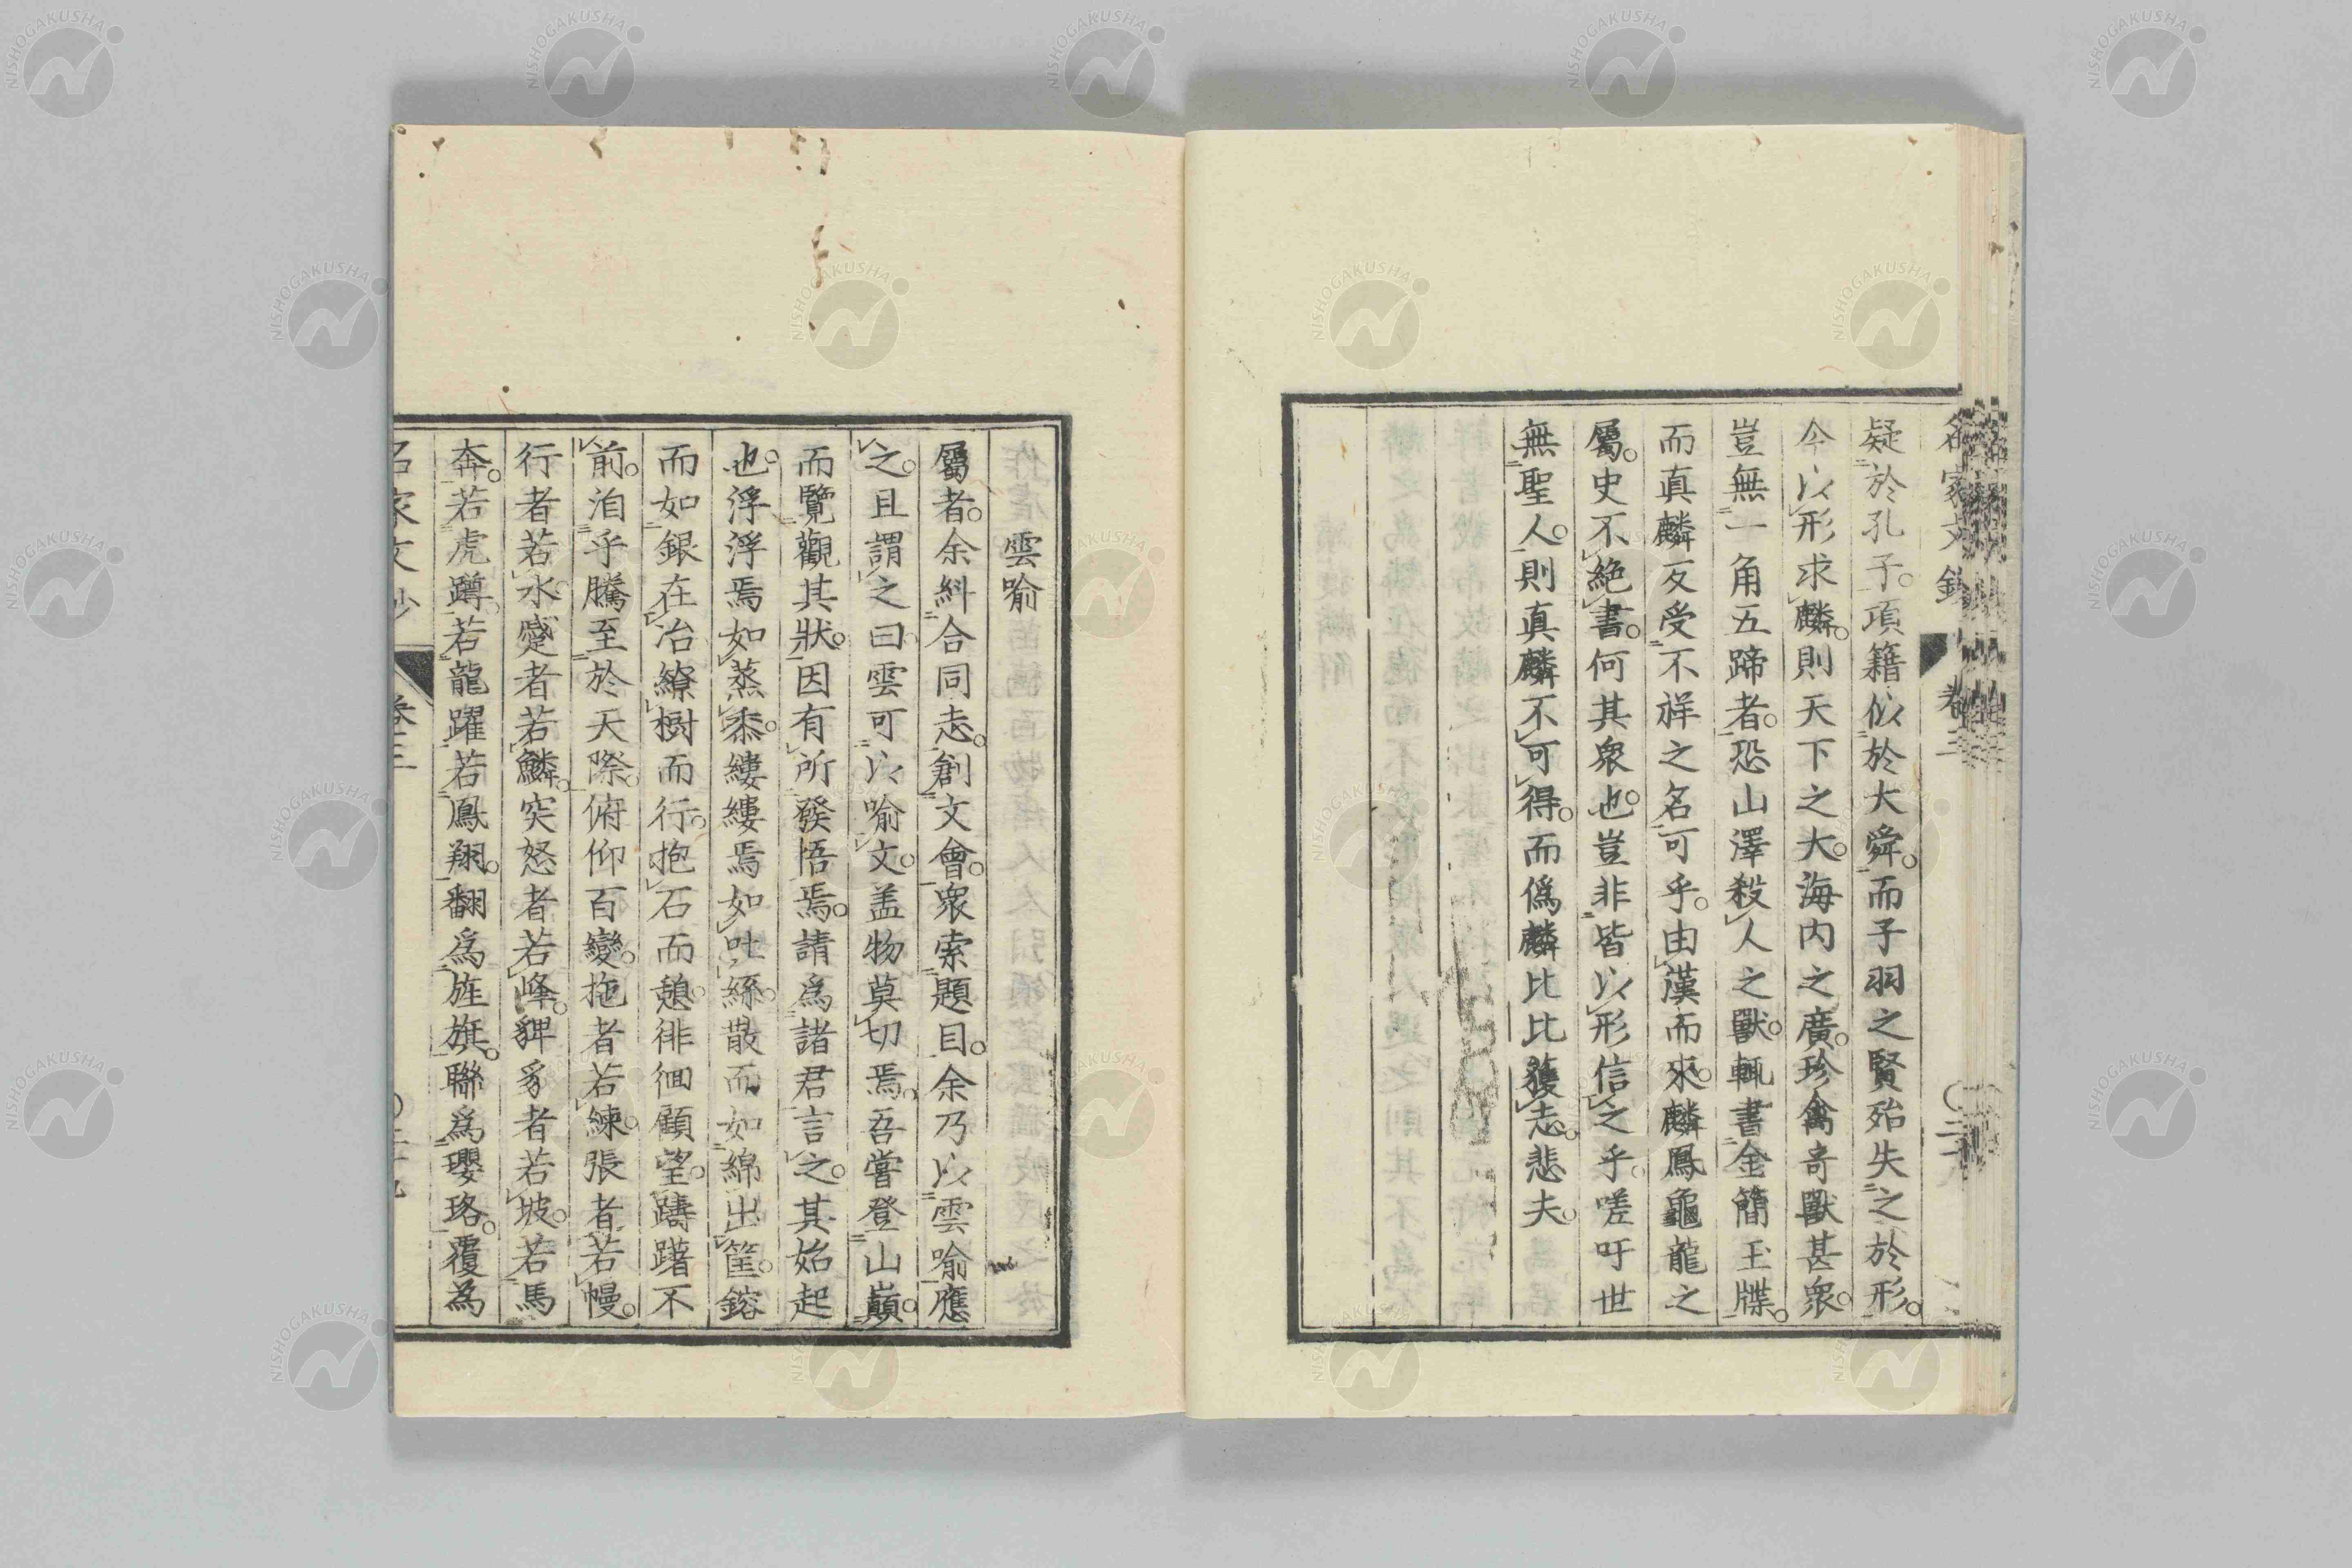 疑於孔子。項籍似於大舜。而子羽之賢殆失之於形。
今以形求麟。則天下之大。海内之廣。珍禽奇獸甚衆。
豈無一角五蹄者。恐山澤殺人之獸。輒書金簡玉牒。
而真麟反受不祥之名可乎。由漢而來。麟鳳龜龍之
屬。史不絶書。何其衆也。豈非皆以形信之乎。嗟吁世
無聖人。則真麟不可得。而僞麟比比獲志。悲夫。
雲喻
屬者。余糾合同志。創文會。衆索題目。余乃以雲喻應
之。且謂之曰。雲可以喻文。盖物莫切焉。吾嘗登山巔。
而覽觀其狀。因有所發悟焉。請爲諸君言之。其始起
也。浮浮焉如蒸黍。縷縷焉如吐絲。散而如綿出筐。鎔
而如銀在冶。繚樹而行。抱石而憩。徘徊顧望。躊躇不
前。洎乎騰至於天際。俯仰百變。拖者若練。張者若幔。
行者若水。蹙者若鱗。突怒者若峰。貏豸者若坡。若馬
奔。若虎蹲。若龍躍。若鳳翔。翻爲旌旗。聯爲瓔珞。覆為
NISHOGAKUSHA